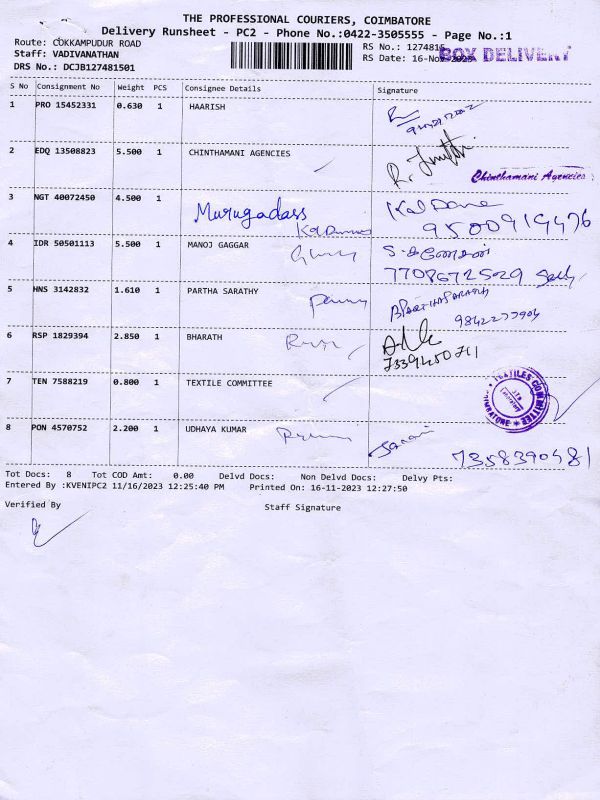 THE PROFESSIONAL COURIERS, COIMBATORE
Delivery Runsheet - PC2 - Phone No.:0422-3505555 - Page No.:1
Route: COKKAMPUDUR ROAD
Staff: VADIVANATHAN
DRS No.: DCJB127481501
RS No.: 1274815
RS Date: 16-Nov-2023
BOX DELIVERY
S No Consignment No Weight PCS Consignee Details Signature
1 PRO 15452331 0.630 1 HAARISH
2 EDQ 13508823 5.500 1 CHINTHAMANI AGENCIES
Chinthamani Agencies
3 NGT 40072450 4.500 1 Murugadass
9500919476
4 IDR 50501113 5.500 1 MANOJ GAGGAR
S. கணேசன்
7708672529
5 HNS 3142832 1.610 1 PARTHA SARATHY
PARTHASARATHY
9842277904
6 RSP 1829394 2.850 1 BHARATH
7339450711
7 TEN 7588219 0.800 1 TEXTILE COMMITTEE
TEXTILES COMMITTEE
COIMBATORE
8 PON 4570752 2.200 1 UDHAYA KUMAR
Janani
7358390481
Tot Docs: 8 Tot COD Amt: 0.00 Delvd Docs: Non Delvd Docs: Delvy Pts:
Entered By :KVENIPC2 11/16/2023 12:25:40 PM Printed On: 16-11-2023 12:27:50
Verified By Staff Signature